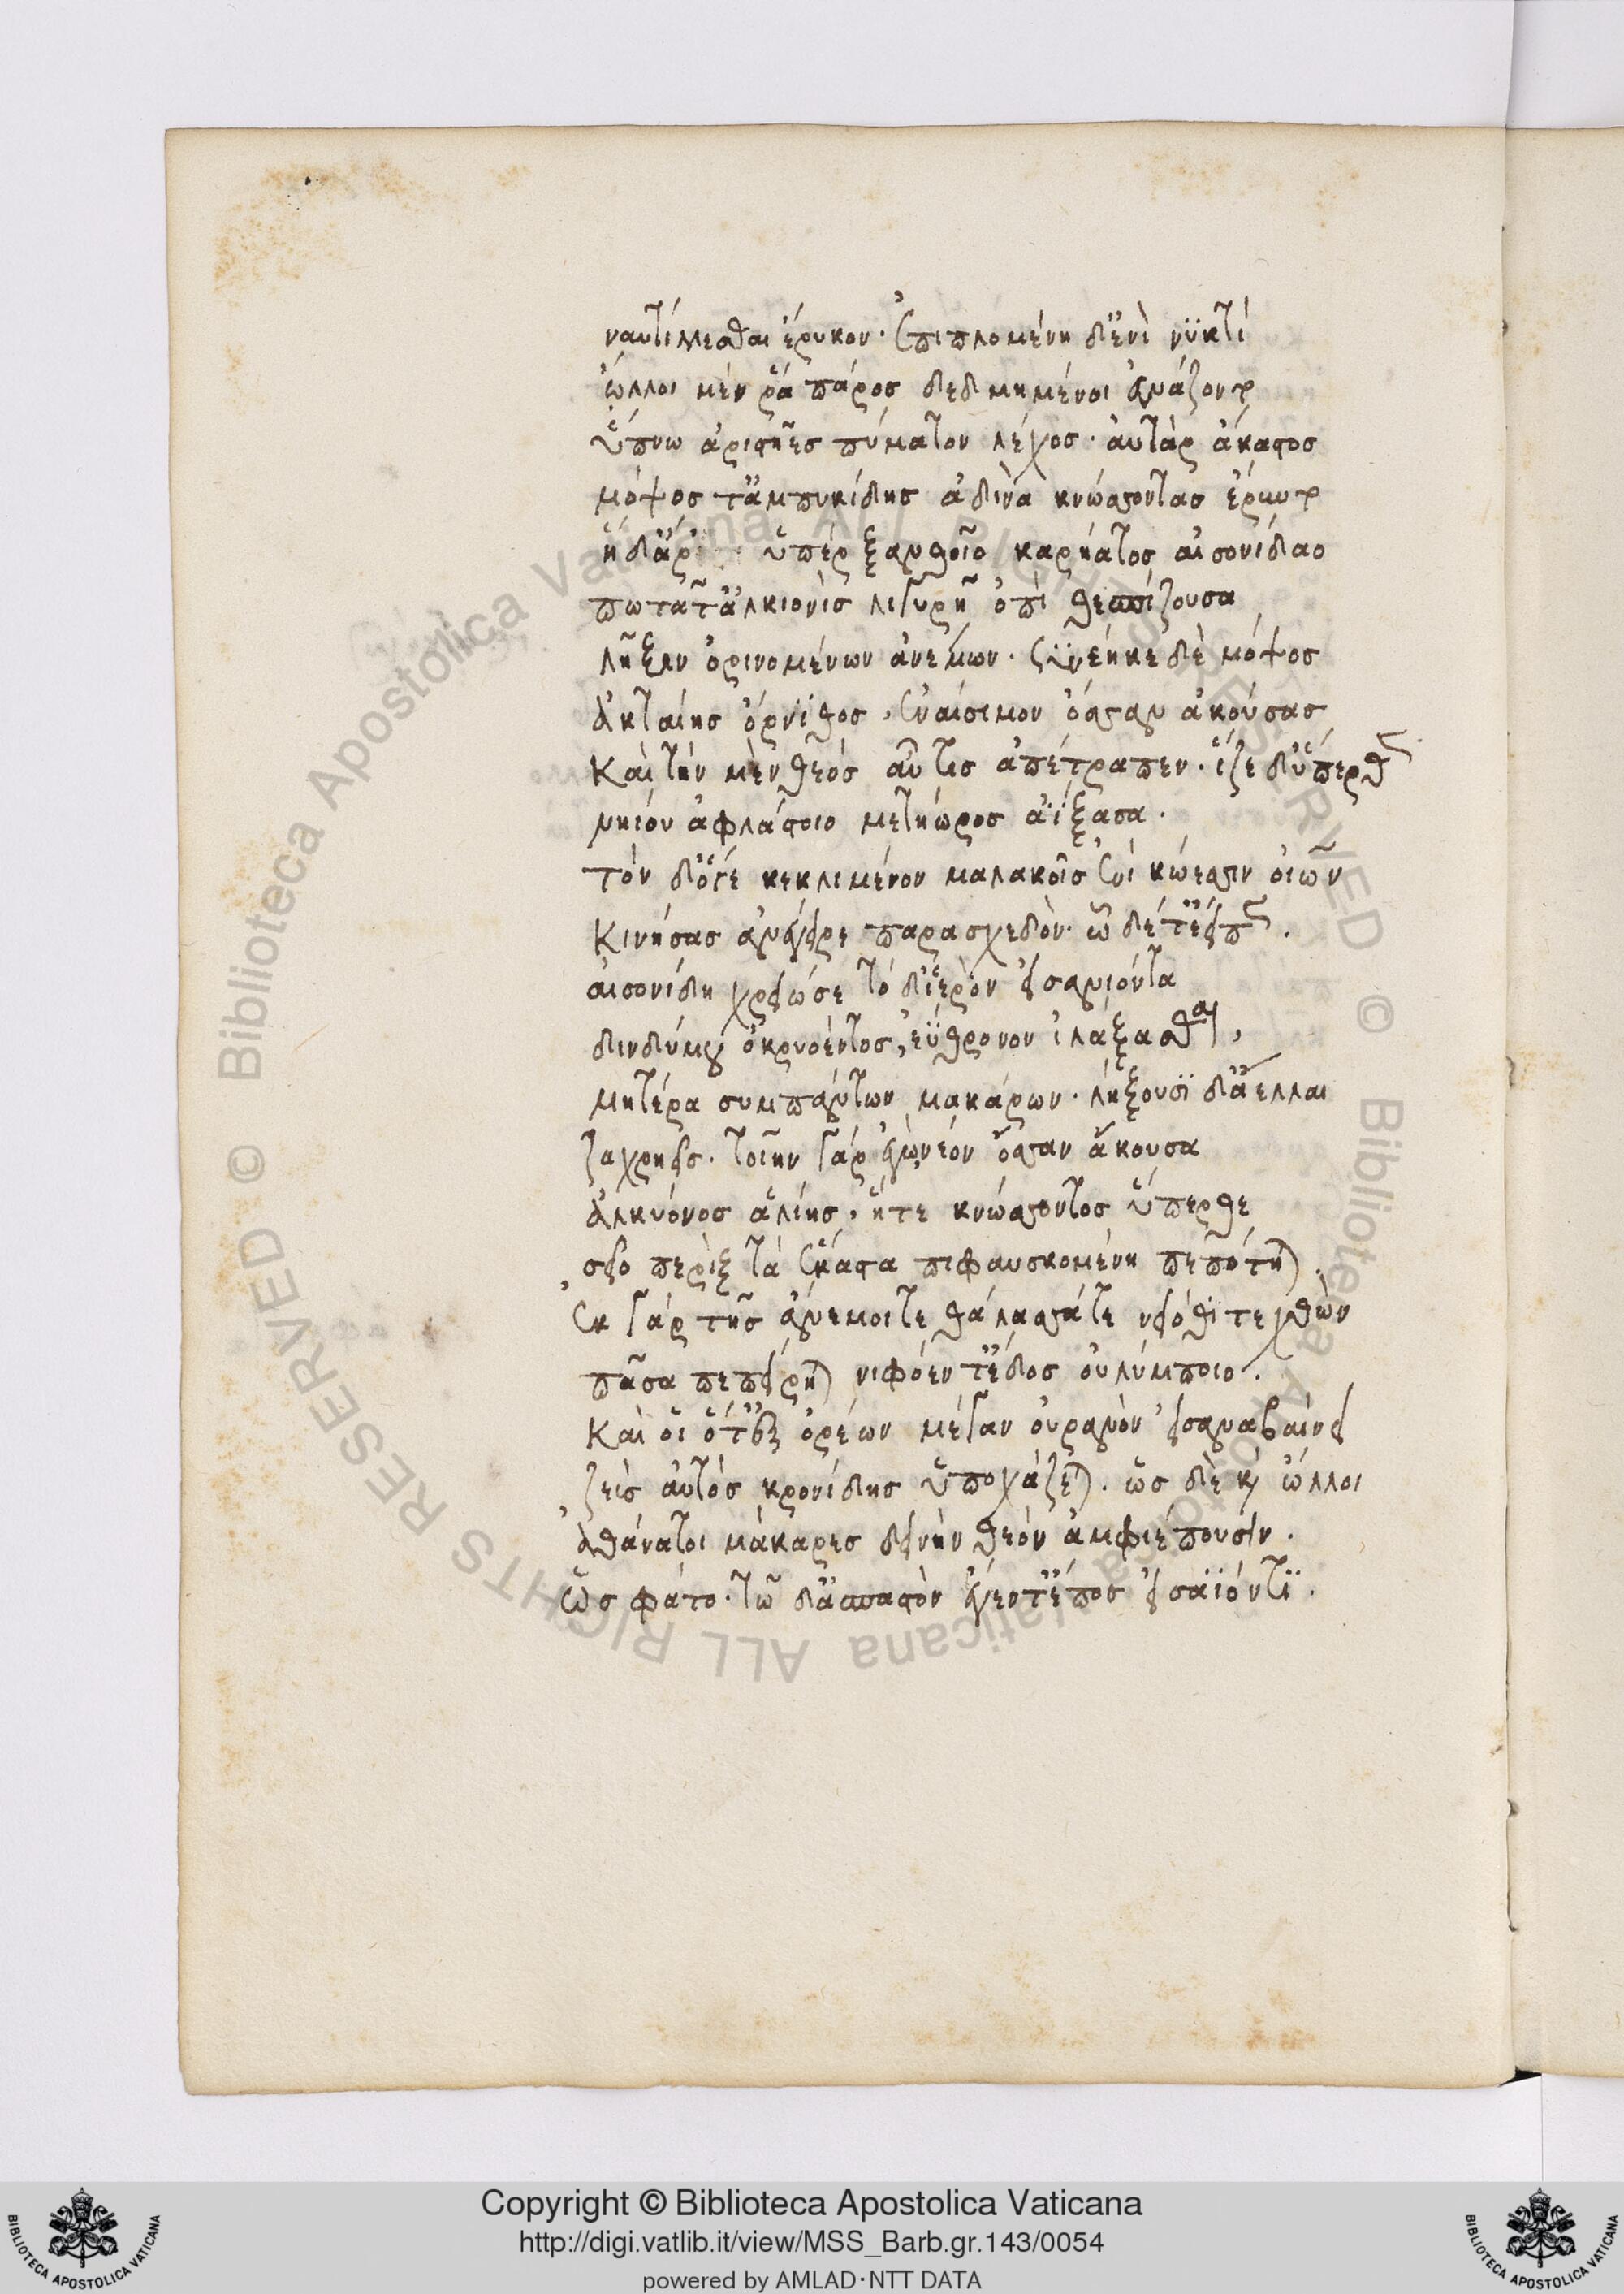 ναυτίλλεσθαι ἔρυκον. ἐπιπλομένη δ' ἐνὶ νϋκτί
ὤλλοι μὲν ῥά πάρος δεδμημένοι εὐνάζοντο
ὕπνω ἀριστῆες πύματον λέχος. ἀυτὰρ ἄκαστος
μόψος τ' ἀμπυκίδης ἀδινὰ κνώσσοντας ἔρυντο
ἡ δ' ἄρ ὑπέρ ξανθοῖο καρήατος αἰσονίδαο
πωτᾶτ' ἀλκιονὶς λιγυρῆ ὀπὶ θεσπίζουσα
λῆξιν ὀρινομένων ἀνέμων. ξυνέηκε δὲ μόψος
ἀκταίης ὄρνϊθος, ἐναίσιμον ὄσσαν ἀκούσας
Καὶ τὴν μὲν θεός αὖτις ἀπέτραπεν. ἷζε δ' ὕπερθεν
νηίου ἀφλάστοιο μετήωρος ἀΐξασα.
τὸν δ' ὅγε κεκλιμένον μαλακοῖς ἐνὶ κώεσιν οἰῶν
Κινήσας ἀνέγειρε παρασχεδόν. ὧδέ τ' ἔειπεν.
αἰσονίδη χρειώ σε τὸ δ' ἱερὸν εἰσανιόντα
δινδύμου ὀκρυόεντος, ἐύθρονον ἱλάξασθαι,
μητέρα συμπάντων μακάρων. λήξουσϊ δ' ἄελλαι
ζαχρηεῖς. τοίην γάρ ἐγὼ νέον ὄσσαν ἄκουσα
ἀλκυόνος ἁλίης, ἥτε κνώσσοντος ὕπερθε
σεῖο πέριξ τὰ ἕκαστα πιφαυσκομένη πεπότηται.
ἐκ γάρ τῆς ἄνεμοί τε θάλασσά τε νειόθϊ τε χθὼν
πᾶσα πεπείρηται νιφόεν τ' ἕδος οὐλύμποιο.
Καὶ οἷ ὅτ' ἐξ ὀρέων μέγαν οὐρανὸν εἰσαναβαίνει
ζεὺς αὐτὸς κρονίδης ὑποχάζεται. ὣς δὲ καὶ ὤλλοι
ἀθάνατοι μάκαρες δεινὴν θεόν ἀμφιέπουσιν.
ὣς φάτο. τῷ δ' ἀσπαστὸν ἔγεντ' ἔπος εἰσαϊόντϊ.
Copyright © Biblioteca Apostolica Vaticana
http://digi.vatlib.it/view/MSS_Barb.gr.143/0054
powered by AMLAD·NTT DATA